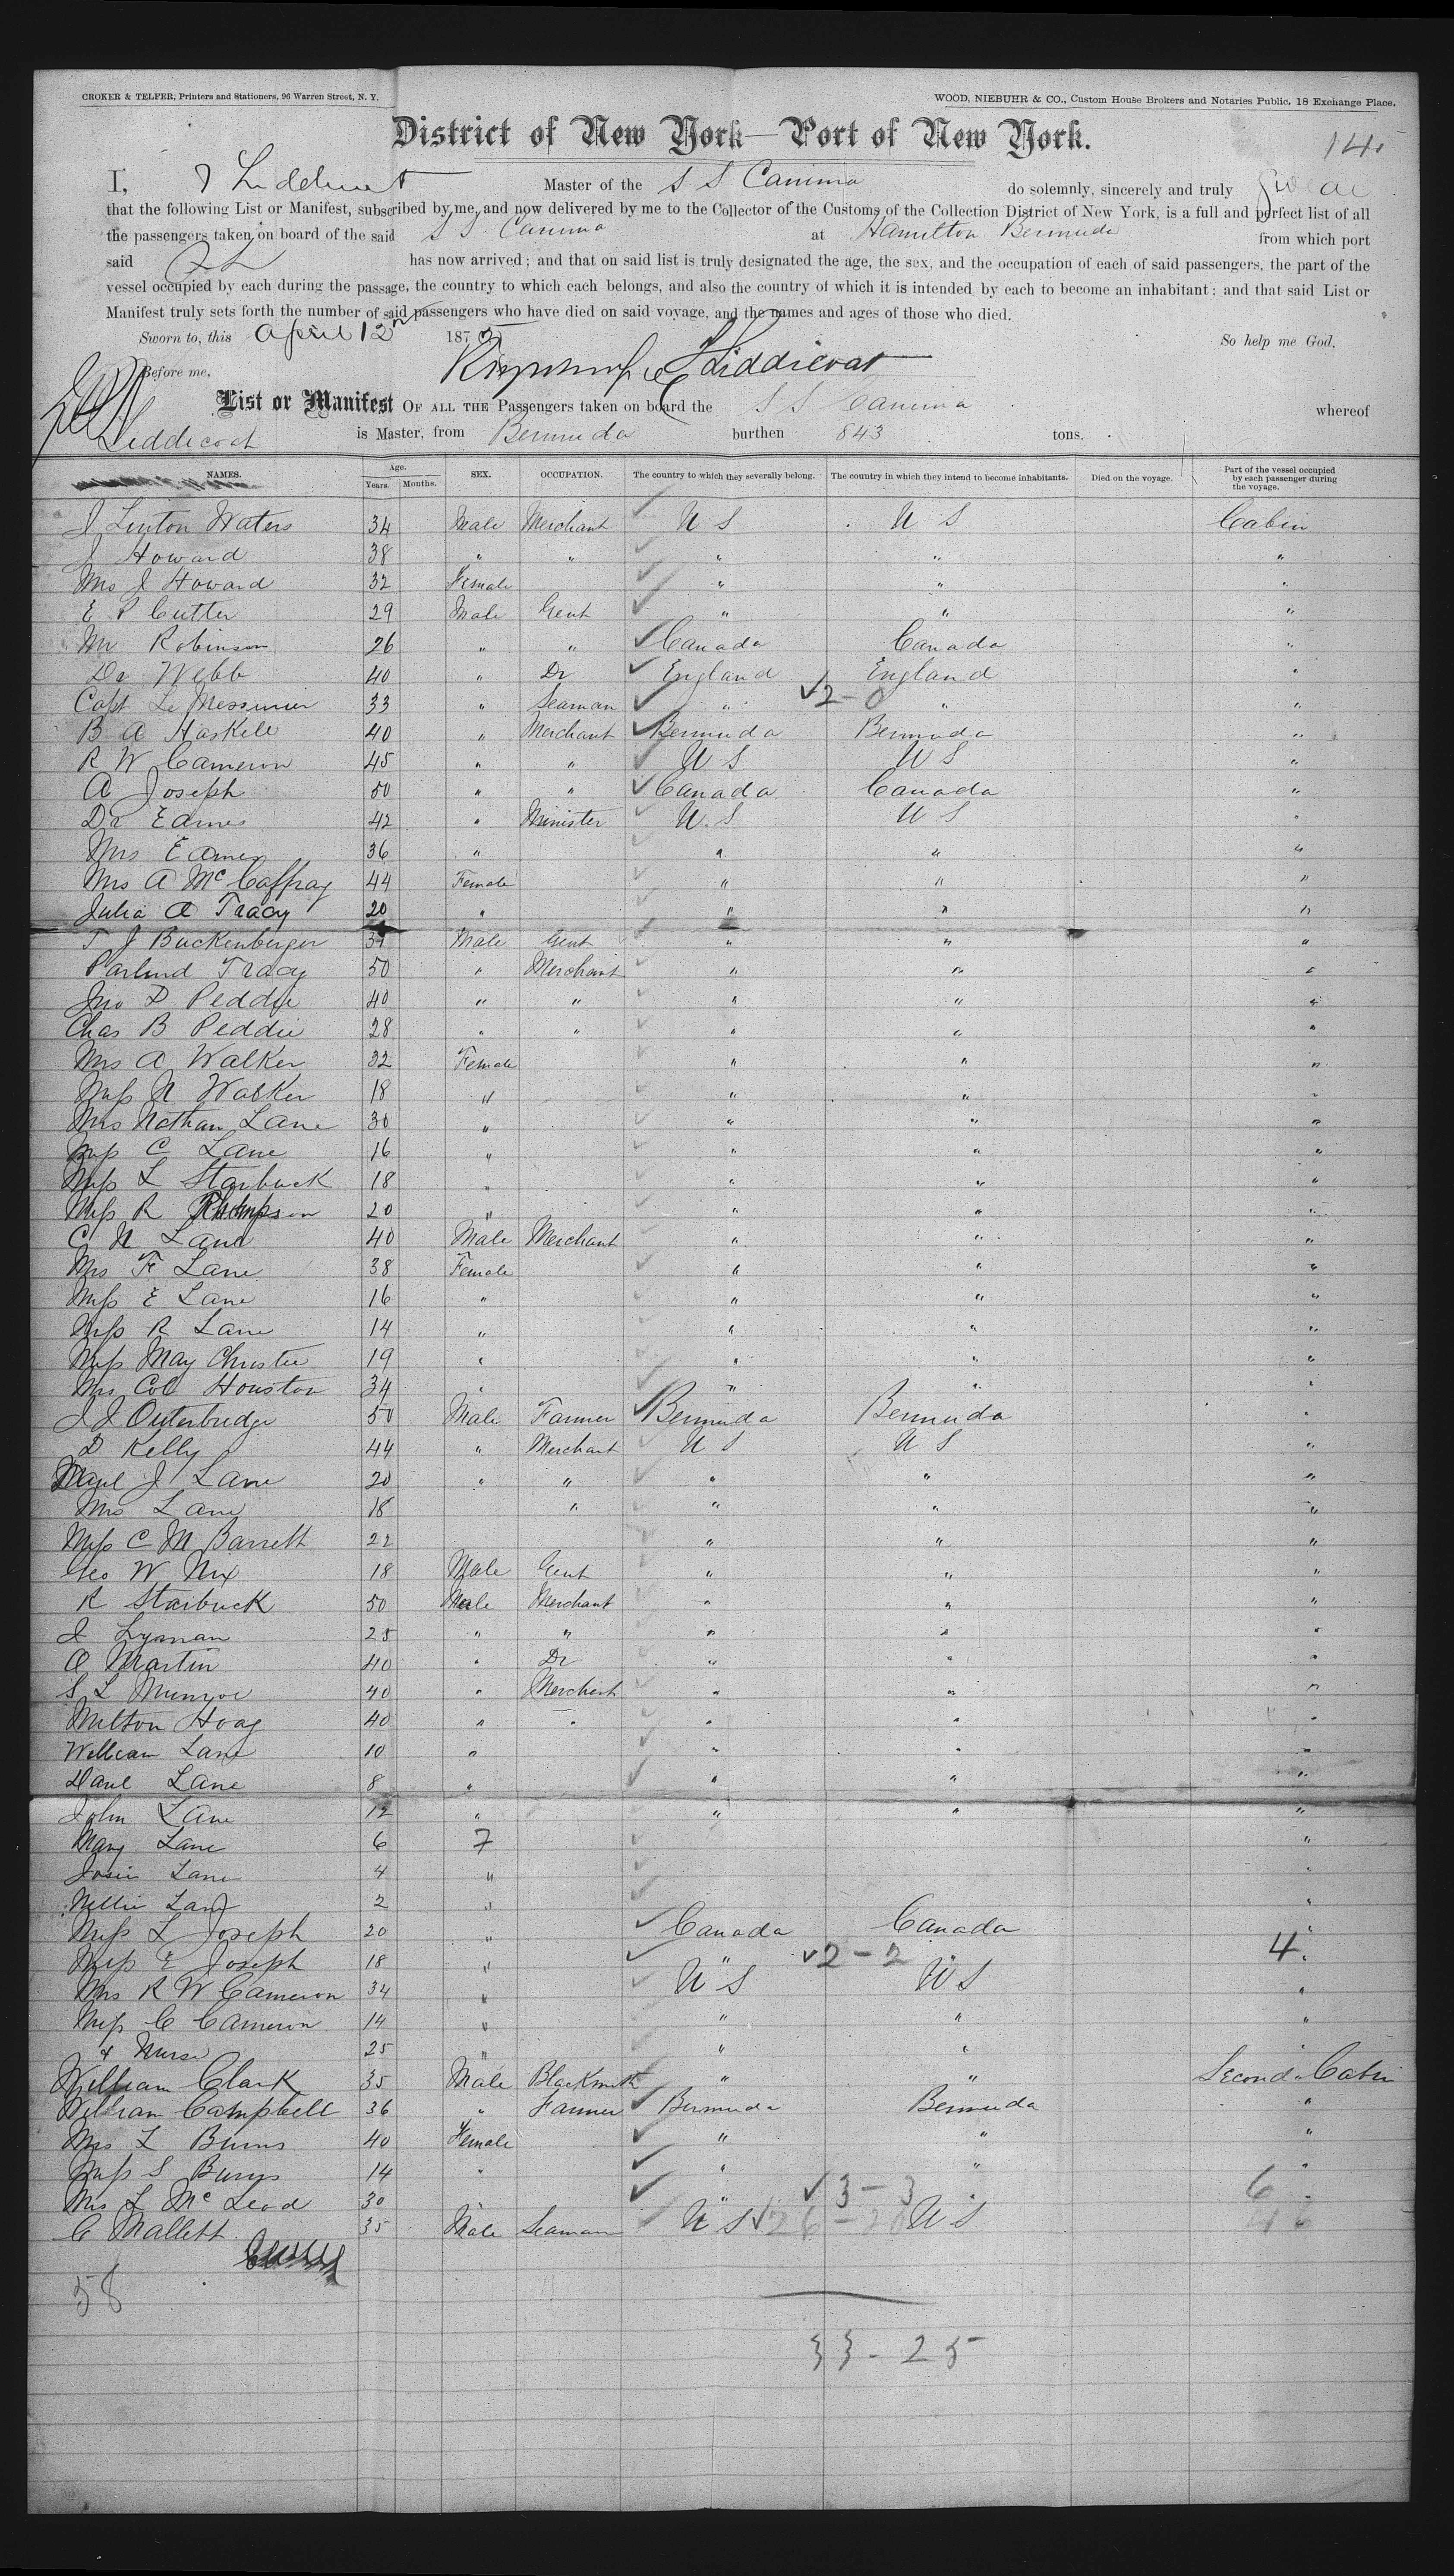 CROKER & TELFER, Printers and Stationers, 96 Warren Street, N. Y.
WOOD, NIEBUHR & CO., Custom House Brokers and Notaries Public, 18 Exchange Place.
District of New York—Port of New York.
14
I, Liddicoat Master of the S S Canima do solemnly, sincerely and truly swear
that the following List or Manifest, subscribed by me, and now delivered by me to the Collector of the Customs of the Collection District of New York, is a full and perfect list of all
the passengers taken on board of the said S S Canima at Hamilton Bermuda from which port
said has now arrived; and that on said list is truly designated the age, the sex, and the occupation of each of said passengers, the part of the
vessel occupied by each during the passage, the country to which each belongs, and also the country of which it is intended by each to become an inhabitant; and that said List or
Manifest truly sets forth the number of said passengers who have died on said voyage, and the names and ages of those who died.
Sworn to, this April 12 187 So help me God,
Before me, Liddicoat
List or Manifest OF ALL THE Passengers taken on board the S S Canima whereof
Liddicoat is Master, from Bermuda burthen 843 tons.
NAMES. Age. Years. Months. SEX. OCCUPATION. The country to which they severally belong. The country in which they intend to become inhabitants. Died on the voyage. Part of the vessel occupied by each passenger during the voyage.
J Linton Waters 34 Male Merchant U S U S Cabin
J Howard 38 " " " " "
Mrs J Howard 32 Female " " "
E P Cutter 29 Male Gent " " "
Mr Robinson 26 " " Canada Canada "
Dr Webb 40 " Dr England England "
Capt Le Messurier 33 " Seaman " 2-0 " "
B A Haskell 40 " Merchant Bermuda Bermuda "
R W Cameron 45 " " U S U S "
A Joseph 50 " " Canada Canada "
Dr Eames 42 " Minister U.S U S "
Mrs Eames 36 " " " "
Mrs A McCaffray 44 Female " " "
Julia A Tracy 20 " " " "
T J Buckenberger 37 Male Gent " " "
Tracy 50 " Merchant " " "
Jno D Peddie 40 " " " " "
Chas B Peddie 28 " " " " "
Mrs A Walker 32 Female " " "
Miss N Walker 18 " " " "
Mrs Nathan Lane 30 " " " "
Miss C Lane 16 " " " "
Miss L Starbuck 18 " " " "
Miss R Thompson 20 " " " "
C N Lane 40 Male Merchant " " "
Mrs F Lane 38 Female " " "
Miss E Lane 16 " " " "
Miss R Lane 14 " " " "
Miss May Christie 19 " " " "
Mrs Col Houston 34 " " " "
J J Outerbridge 50 Male Farmer Bermuda Bermuda "
D Kelly 44 " Merchant U S U S "
J Lane 20 " " " " "
Mrs Lane 18 " " " "
Miss C M Barrett 22 " " "
Geo W Nix 18 Male Gent " " "
R Starbuck 50 Male Merchant " " "
J Lyman 28 " " " " "
A Martin 40 " Dr " " "
S L Munroe 40 " Merchant " " "
Milton Hoag 40 " " " " "
William Lane 10 " " " "
Danl Lane 8 " " " "
John Lane 12 " " " "
Mary Lane 6 F "
Josie Lane 4 " "
Nellie Lane 2 " "
Miss L Joseph 20 " Canada Canada "
Miss E Joseph 18 " " 2-2 " 4 "
Mrs R W Cameron 34 " U S U S "
Miss C Cameron 14 " " " "
& Nurse 25 " " " "
William Clark 35 Male Blacksmith " " Second Cabin
William Campbell 36 " Farmer Bermuda Bermuda "
Mrs L Burns 40 Female " " "
Miss S Burns 14 " " " "
Mrs L McLeod 30 " " 3-3 " 6 "
C Mallett 35 Male Seaman U S U S
58
33-25